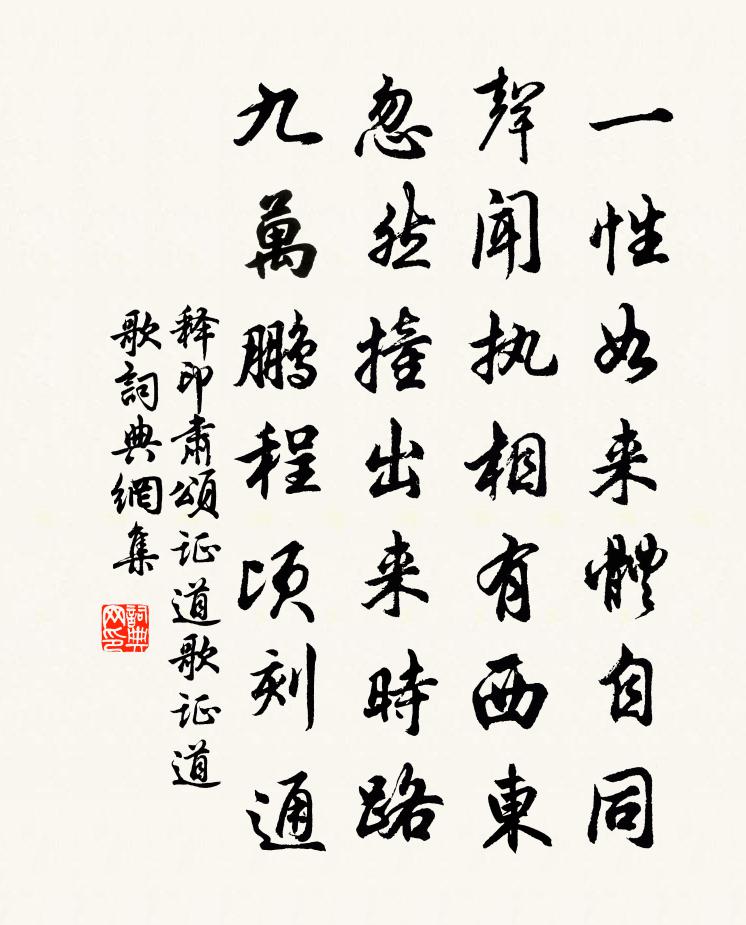 一性如来體自同
聲聞执相有西東
忽然撞出来時路
九萬鹏程顷刻通
释印肃頌证道歌证道
歌詞典網集
詞典
网印